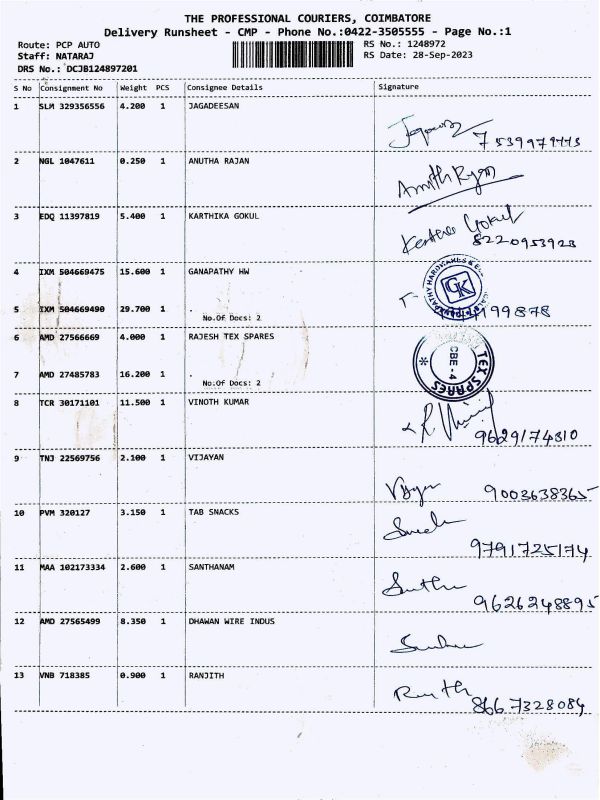 THE PROFESSIONAL COURIERS, COIMBATORE
Delivery Runsheet - CMP - Phone No.:0422-3505555 - Page No.:1
Route: PCP AUTO RS No.: 1248972
Staff: NATARAJ RS Date: 28-Sep-2023
DRS No.: DCJB124897201
S No Consignment No Weight PCS Consignee Details Signature
1 SLM 329356556 4.200 1 JAGADEESAN
2 NGL 1047611 0.250 1 ANUTHA RAJAN
3 EDQ 11397819 5.400 1 KARTHIKA GOKUL
8220953923
4 IXM 504669475 15.600 1 GANAPATHY HW
GK
5 IXM 504669490 29.700 1 .
No.Of Docs: 2
6 AMD 27566669 4.000 1 RAJESH TEX SPARES
TEX SPARES
CBE - 4
7 AMD 27485783 16.200 1 .
No.Of Docs: 2
8 TCR 30171101 11.500 1 VINOTH KUMAR
9629174810
9 TNJ 22569756 2.100 1 VIJAYAN
9003638365
10 PVM 320127 3.150 1 TAB SNACKS
9791725174
11 MAA 102173334 2.600 1 SANTHANAM
9626248895
12 AMD 27565499 8.350 1 DHAWAN WIRE INDUS
13 VNB 718385 0.900 1 RANJITH
8667328084